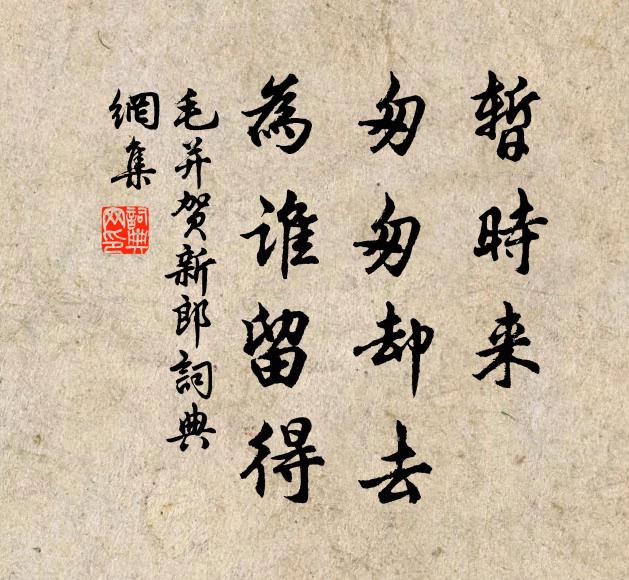 暫時来
匆匆却去
為誰留得
毛并贺新郎詞典
網集
詞典
网印